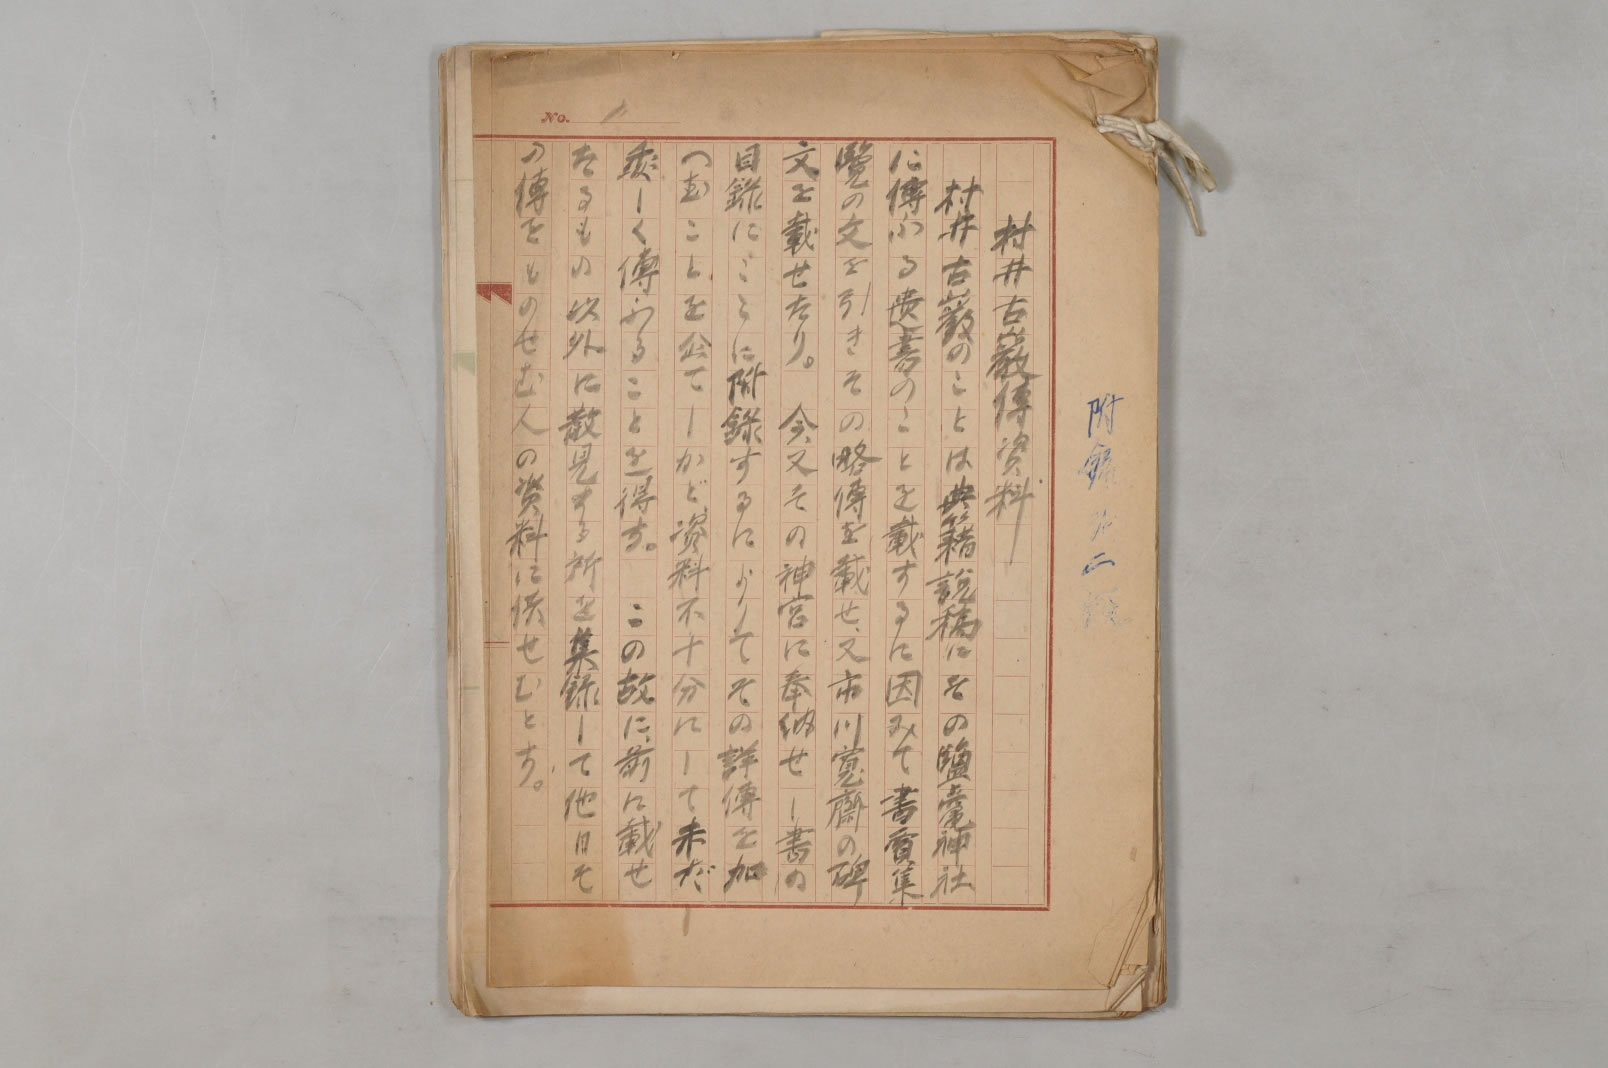 附録第二
No. 1
村井古巖傳資料
村井古巖のことは典籍説稿にその鹽竈神社
に傳ふる遺書のことを載するに因みて書賈集
覽の文を引きその略傳を載せ、又市川寛齋の碑
文を載せたり。今又その神宮に奉納せし書の
目録にここに附録するによりてその詳傳を加
へむことを企てしかど、資料不十分にして未だ
委しく傳ふることを得ず。この故に、前に載せ
たるもの以外に散見する所を集録して他日そ
の傳をものせむ人の資料に供せむとす。